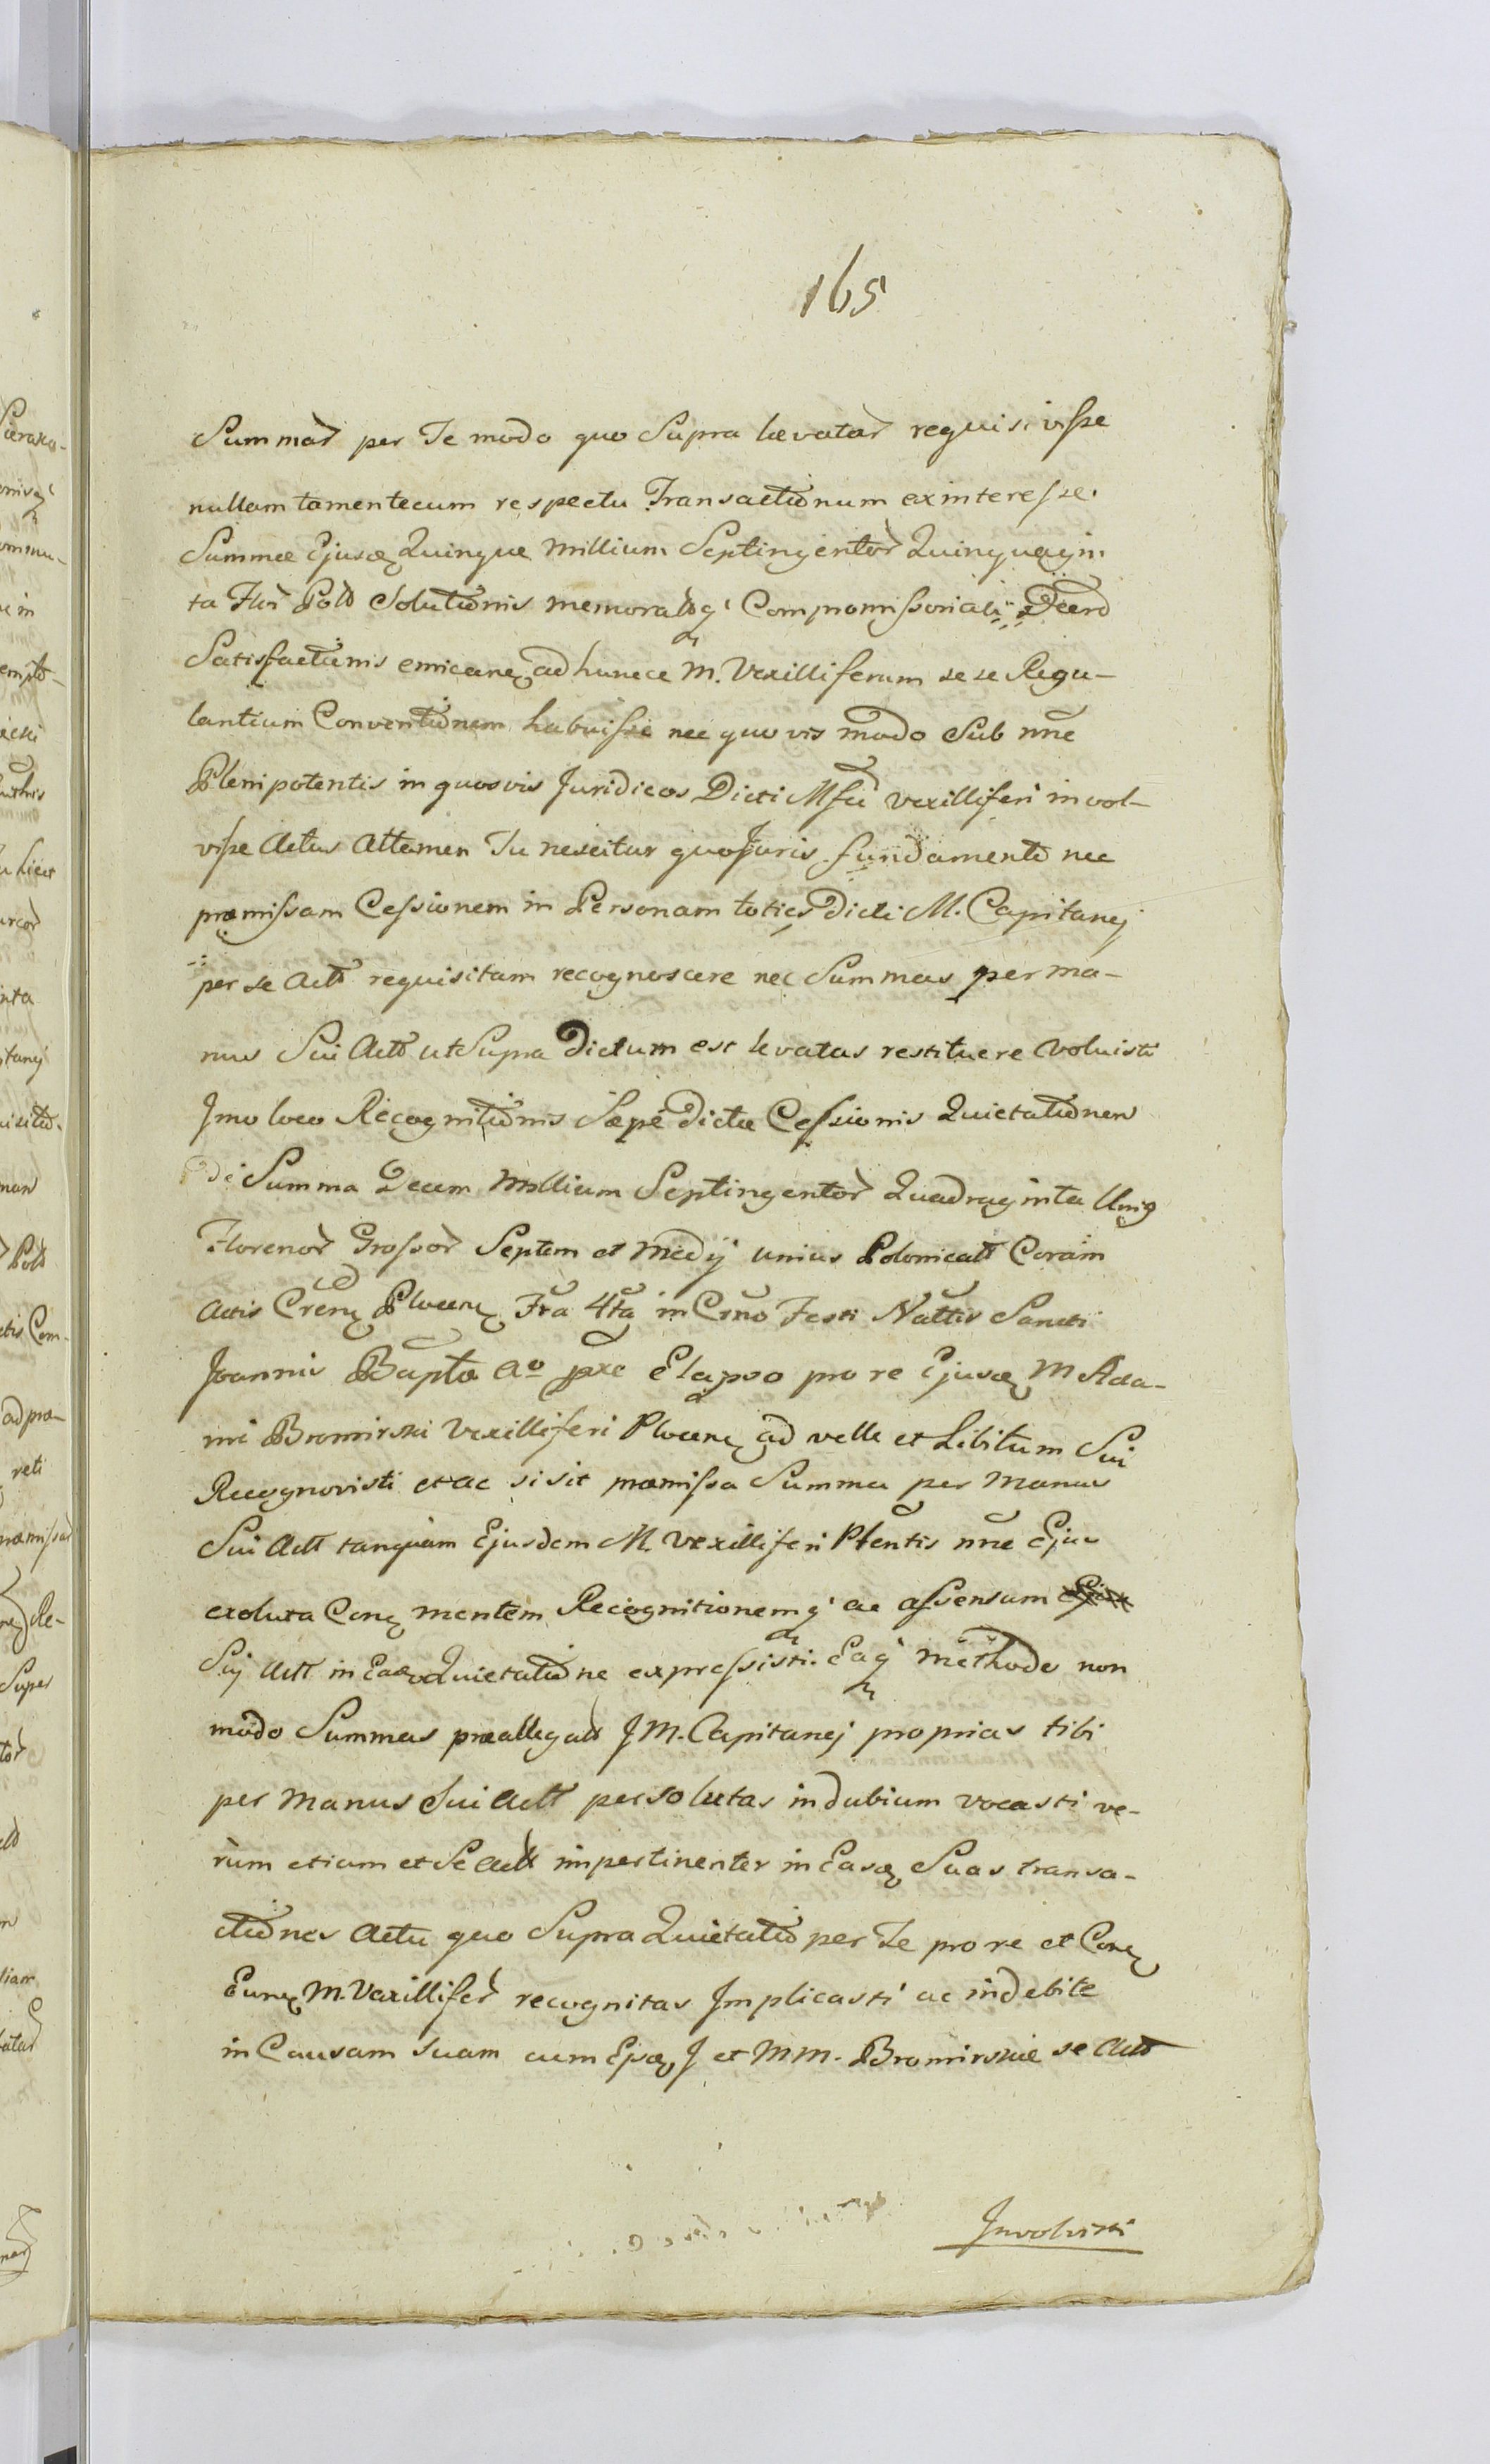 165
Summar per Te modo quo Supra levatar requisivisse
nullam tamen tecum respectu Transactionum ex interesse
Summæ Ejusdæ Quinque Millium Septingentor Quinquagin
ta Flor Pold Solutionis memoratoq Compromissoriali Decrd
Satisfactionis emicanę ad huncce M. Vexilliferum se se Regu-
lantium Conventionem habuisse nec quovis modo Sub nne
Plenipotentis in quosvis Juridicos Dicti Mfci Vexilliferi invol-
visse Actus Attamen Tu nescitur quo Juris fundamento nec
præmissam Cessionem in Personam toties Dicti M. Capitanej
per se Actt requisitam recognoscere nec Summas per ma-
nus Sui Actt ut Supra Dictum est levatas restituere voluisti
Jmo loco Recognitionis Sæpe Dictæ Cessionis Quietationem
de Summa Decem Millium Septingentor Quadraginta Unig
Florenor Grossor Septem et Medij unius Polonicalt Coram
Actis Crenę Plocenę Fra 4ta in Crno Festi Nattis Sancti
Joannis Bapta Ao pxe Elapso pro re Ejusdæ M Ada-
mi Bromirski Vexilliferi Plocenę ad velle et Libitum Sui
Recognovisti et ac si sit præmissa Summa per Manus
Sui Actt tanquam Ejusdem M. Vexilliferi Plentis nne Ejus
exoluta Conę mentem Recognitionemq ac assensum
Sij Actt in Eadę Quietatione expressisti. Eaq methodo non
modo Summas præallegatt J M. Capitanej proprias tibi
per Manus Sui Actt persolutas in dubium vocasti ve-
rum etiam et Se Actt impertinenter in Easdę Suas transa-
ctiones Actu quo Supra Quietatio per Te pro re et Conę
Eunę M. Vexillifer recognitas Jmplicasti ac indebite
in Causam suam cum Epdę J et MM. Bromirskie se Actt
Jnvolvisti